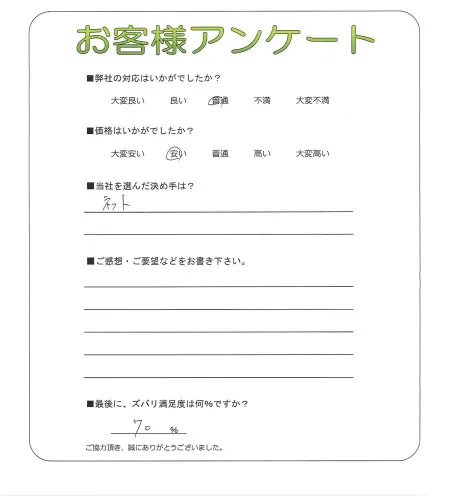 お客様アンケート
■弊社の対応はいかがでしたか？
大変良い 良い 普通 不満 大変不満
■価格はいかがでしたか？
大変安い 安い 普通 高い 大変高い
■当社を選んだ決め手は？
ネット
■ご感想・ご要望などをお書き下さい。
■最後に、ズバリ満足度は何%ですか？
70 %
ご協力頂き、誠にありがとうございました。